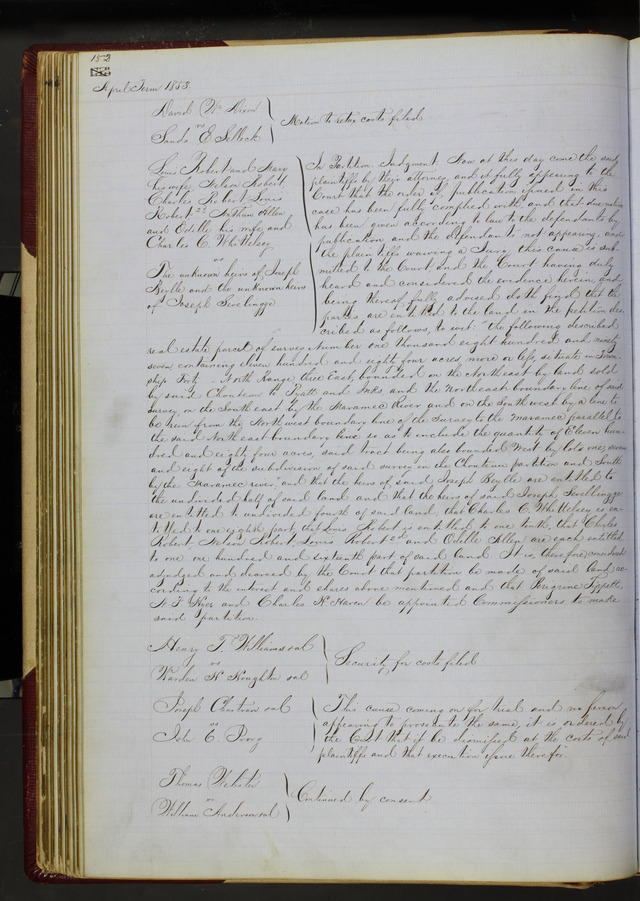 152
April Term 1853.
David W. Dixon
vs
Sands E. Selleck
Motion to retax costs filed
Louis Robert and Mary
his wife Nelson Robert,
Charles Robert Louis
Robert 2d Nathan Allen
and Odille his wife and
Charles C. Whittelsey
vs
The unknown heirs of Joseph
Beylle and the unknown heirs
of Joseph
In Partition. Judgment. Now at this day come the said
plaintiffs by their attorney, and it fully appearing to the
Court that the order of publication issued in this
case has been fully complied with, and that due notice
has been given according to law to the defendants by
publication and the defendants not appearing, and
the plaintiffs waiving a Jury this cause is sub-
mitted to the Court and the Court having duly
heard and considered the evidence herein and
being thereof fully advised doth find that the
parties are entitled to the land in the petition des-
cribed as follows, to wit. "The following described
real estate parcel of survey Number one thousand eight hundred and ninety
seven containing eleven hundred and eighty four acres, more or less, situate in Town-
ship Forty North Range three East, bounded on the Northeast by land sold
by said Chouteau to Pratt and and the Northeast boundary line of said
survey, on the South east by the Maramec River and on the South west by a line to
be run from the North west boundary line of the Survey to the Maramec parallel to
the said North east boundary line so as to include the quantity of Eleven hun-
dred and eighty four acres, said tract being also bounded West by lots one, seven
and eight of the subdivision of said survey in the Chouteau partition and South
by the Maramec river," and that the heirs of said Joseph Beylle are entitled to
the undivided half of said land and that the heirs of said Joseph
are entitled to undivided fourth of said land, that Charles C. Whittelsey is en-
titled to one eighth part, that Louis Robert is entitled to one tenth, that Charles
Robert, Nelson Robert, Louis Robert 2d and Odille Allen are each entitled
to one one hundred and sixtieth part of said land. It is therefore considered
adjudged and decreed by the Court that partition be made of said land ac-
cording to the interest and shares above mentioned and that Peregrine Tippett,
and Charles H. Haven be appointed Commissioners to make
said partition.
Henry T. Williams et al
vs
Warden H. Houghton et al
Security for costs filed
Joseph et al
vs
John C.
This cause coming on for trial and no person
appearing to prosecute the same, it is ordered by
the Court that it be dismissed at the costs of said
plaintiffs and that execution issue therefor.
Thomas Webster
vs
William Anderson et al
Continued by consent